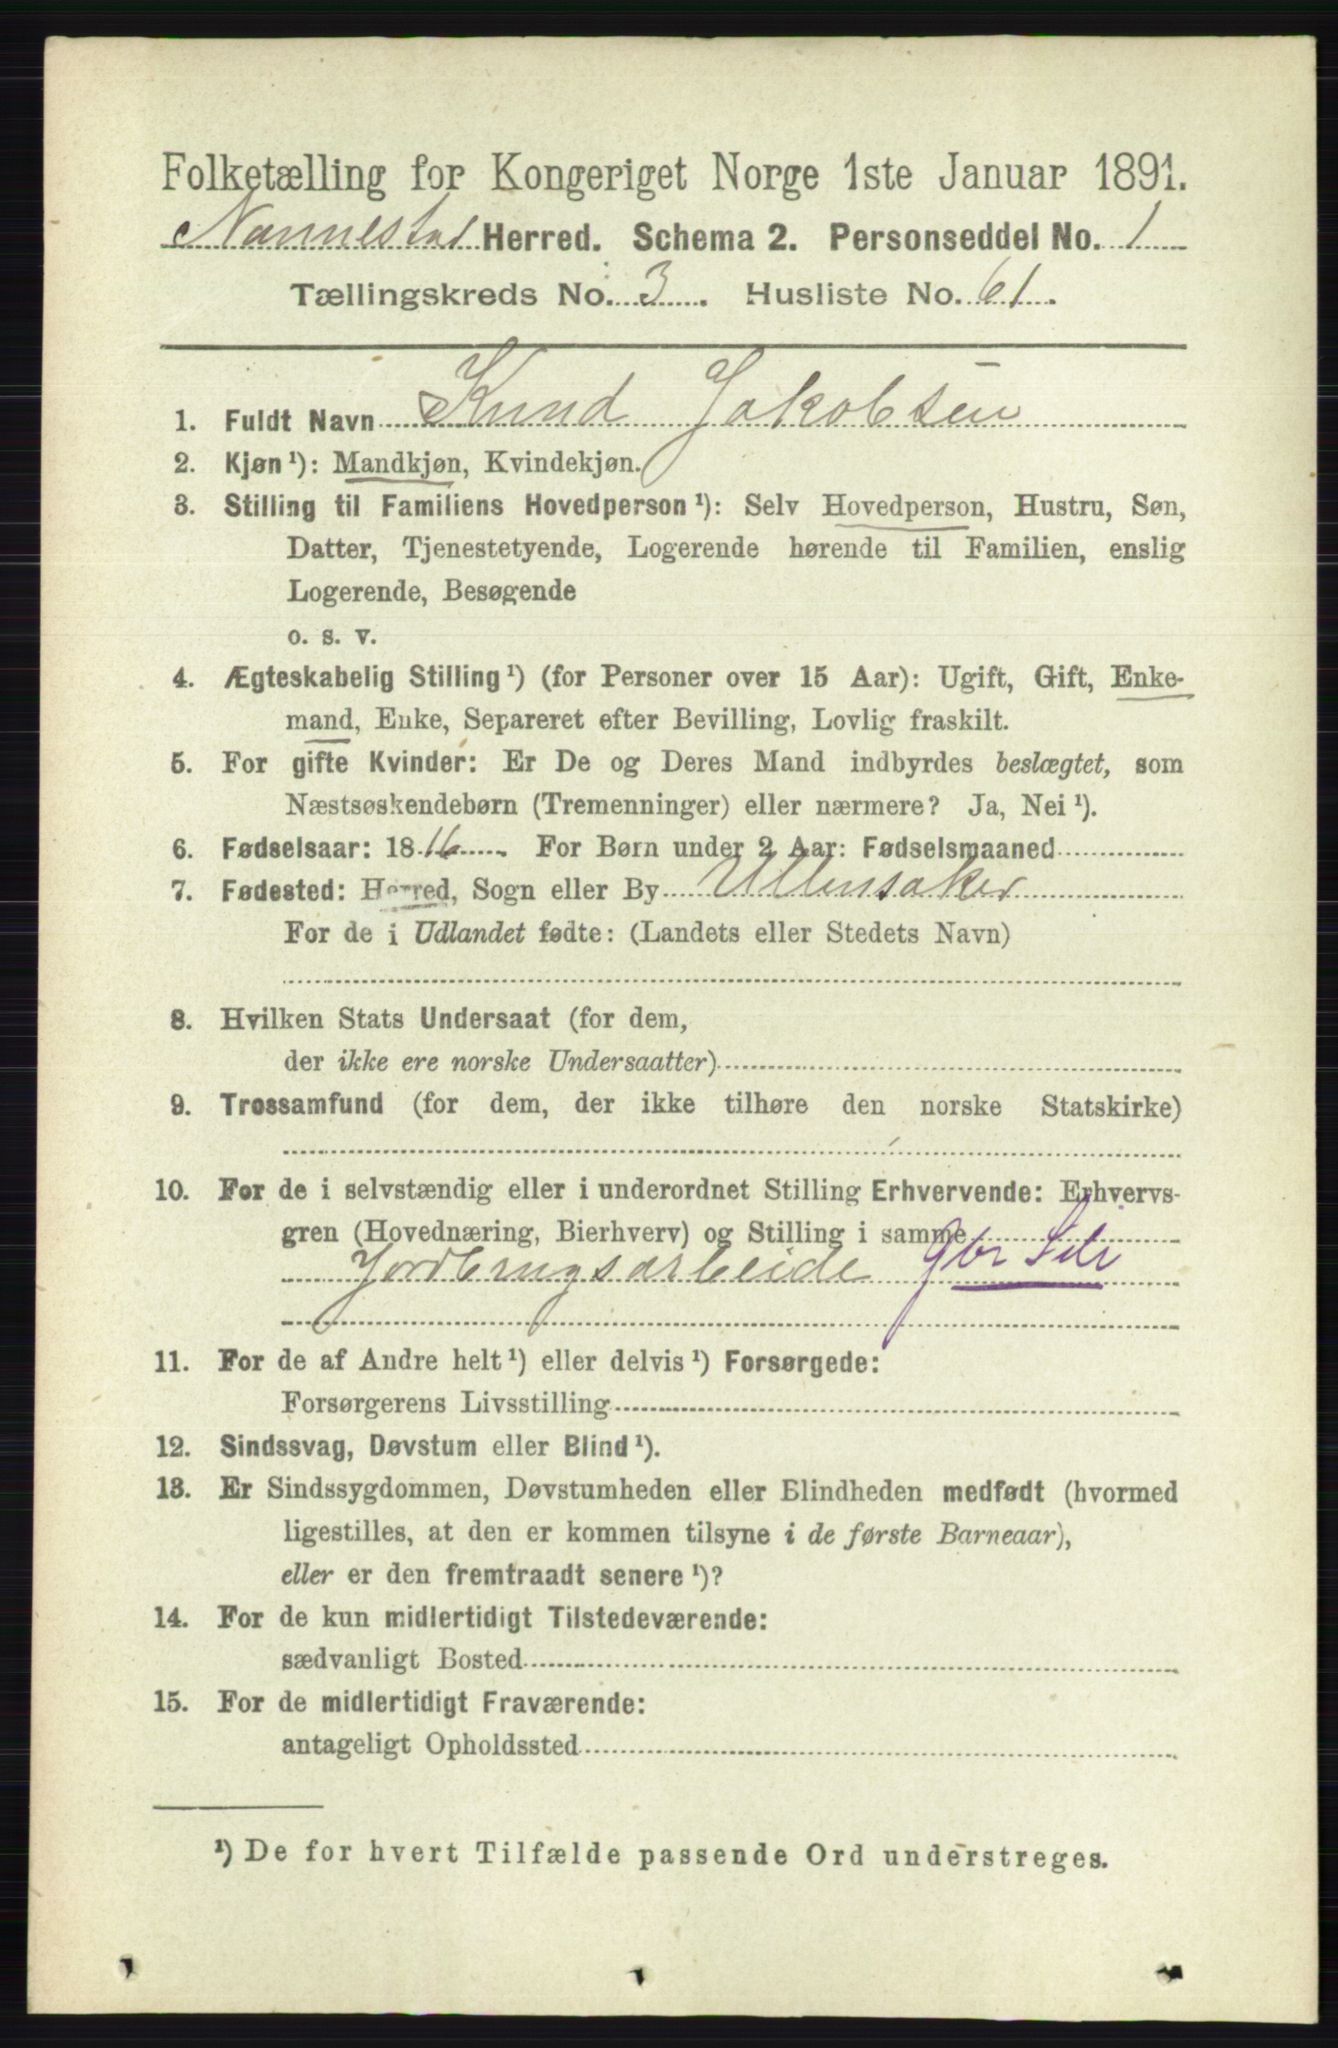 Folketælling for Kongeriget Norge 1ste Januar 1891.
Nannestad Herred. Schema 2. Personseddel No. 1
Tællingskreds No. 3. Husliste No. 61.
1. Fuldt Navn Knud Jakobsen
2. Kjøn¹): Mandkjøn, Kvindekjøn.
3. Stilling til Familiens Hovedperson¹): Selv Hovedperson, Hustru, Søn,
Datter, Tjenestetyende, Logerende hørende til Familien, enslig
Logerende, Besøgende
o. s. v.
4. Ægteskabelig Stilling¹) (for Personer over 15 Aar): Ugift, Gift, Enke-
mand, Enke, Separeret efter Bevilling, Lovlig fraskilt.
5. For gifte Kvinder: Er De og Deres Mand indbyrdes beslægtet, som
Næstsøskendebørn (Tremenninger) eller nærmere? Ja, Nei¹).
6. Fødselsaar: 1816. For Børn under 2 Aar: Fødselsmaaned
7. Fødested: Herred, Sogn eller By Ullensaker
For de i Udlandet fødte: (Landets eller Stedets Navn)
8. Hvilken Stats Undersaat (for dem,
der ikke ere norske Undersaatter)
9. Trossamfund (for dem, der ikke tilhøre den norske Statskirke)
10. For de i selvstændig eller i underordnet Stilling Erhvervende: Erhvervs-
gren (Hovednæring, Bierhverv) og Stilling i samme
Jordbrugsarbeide Gbr Selv
11. For de af Andre helt¹) eller delvis¹) Forsørgede:
Forsørgerens Livsstilling
12. Sindssvag, Døvstum eller Blind¹).
13. Er Sindssygdommen, Døvstumheden eller Blindheden medfødt (hvormed
ligestilles, at den er kommen tilsyne i de første Barneaar),
eller er den fremtraadt senere¹)?
14. For de kun midlertidigt Tilstedeværende:
sædvanligt Bosted
15. For de midlertidigt Fraværende:
antageligt Opholdssted
¹) De for hvert Tilfælde passende Ord understreges.